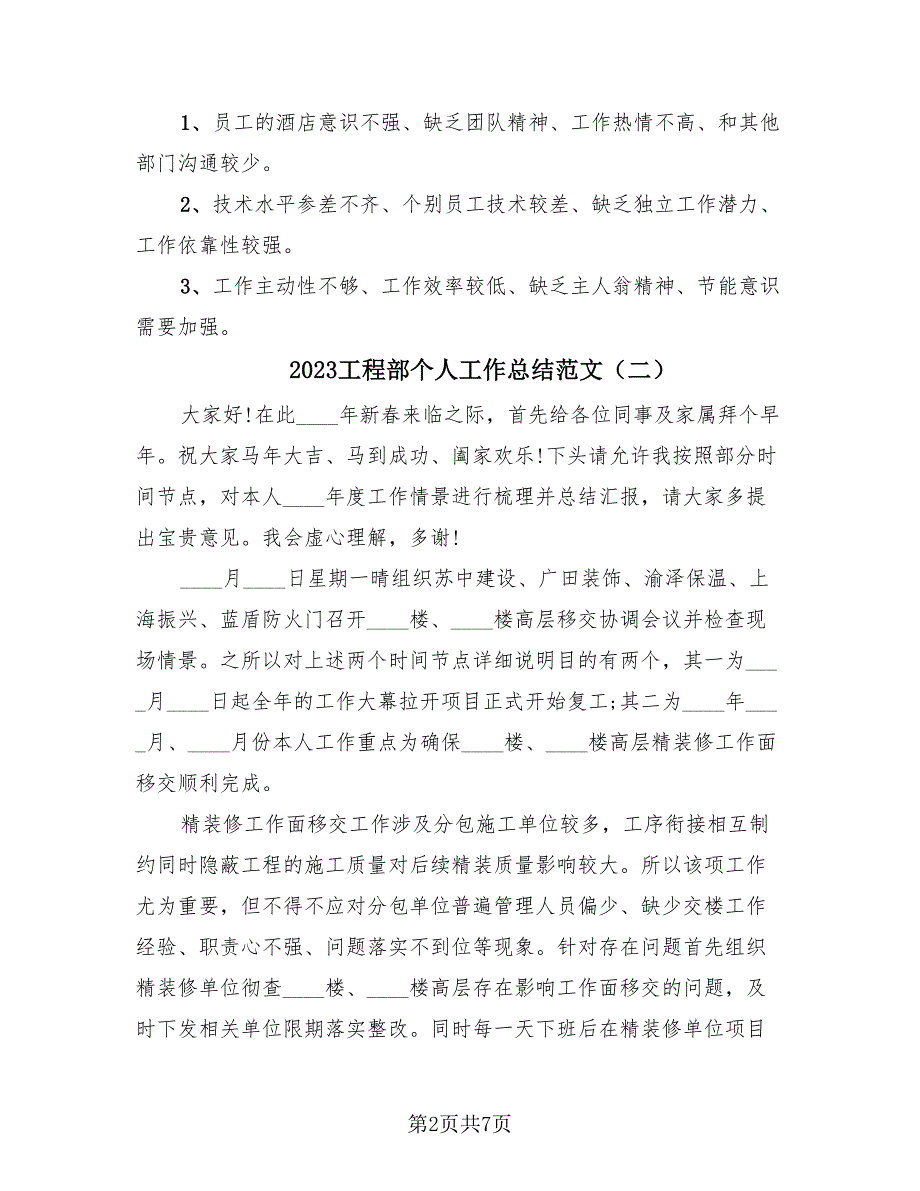 1、员工的酒店意识不强、缺乏团队精神、工作热情不高、和其他
部门沟通较少。
2、技术水平参差不齐、个别员工技术较差、缺乏独立工作潜力、
工作依靠性较强。
3、工作主动性不够、工作效率较低、缺乏主人翁精神、节能意识
需要加强。
2023工程部个人工作总结范文（二）
大家好!在此____年新春来临之际，首先给各位同事及家属拜个早
年。祝大家马年大吉、马到成功、阖家欢乐!下头请允许我按照部分时
间节点，对本人____年度工作情景进行梳理并总结汇报，请大家多提
出宝贵意见。我会虚心理解，多谢!
____月____日星期一晴组织苏中建设、广田装饰、渝泽保温、上
海振兴、蓝盾防火门召开____楼、____楼高层移交协调会议并检查现
场情景。之所以对上述两个时间节点详细说明目的有两个，其一为___
_月____日起全年的工作大幕拉开项目正式开始复工;其二为____年___
_月、____月份本人工作重点为确保____楼、____楼高层精装修工作面
移交顺利完成。
精装修工作面移交工作涉及分包施工单位较多，工序衔接相互制
约同时隐蔽工程的施工质量对后续精装质量影响较大。所以该项工作
尤为重要，但不得不应对分包单位普遍管理人员偏少、缺少交楼工作
经验、职责心不强、问题落实不到位等现象。针对存在问题首先组织
精装修单位彻查____楼、____楼高层存在影响工作面移交的问题，及
时下发相关单位限期落实整改。同时每一天下班后在精装修单位项目
第2页共7页